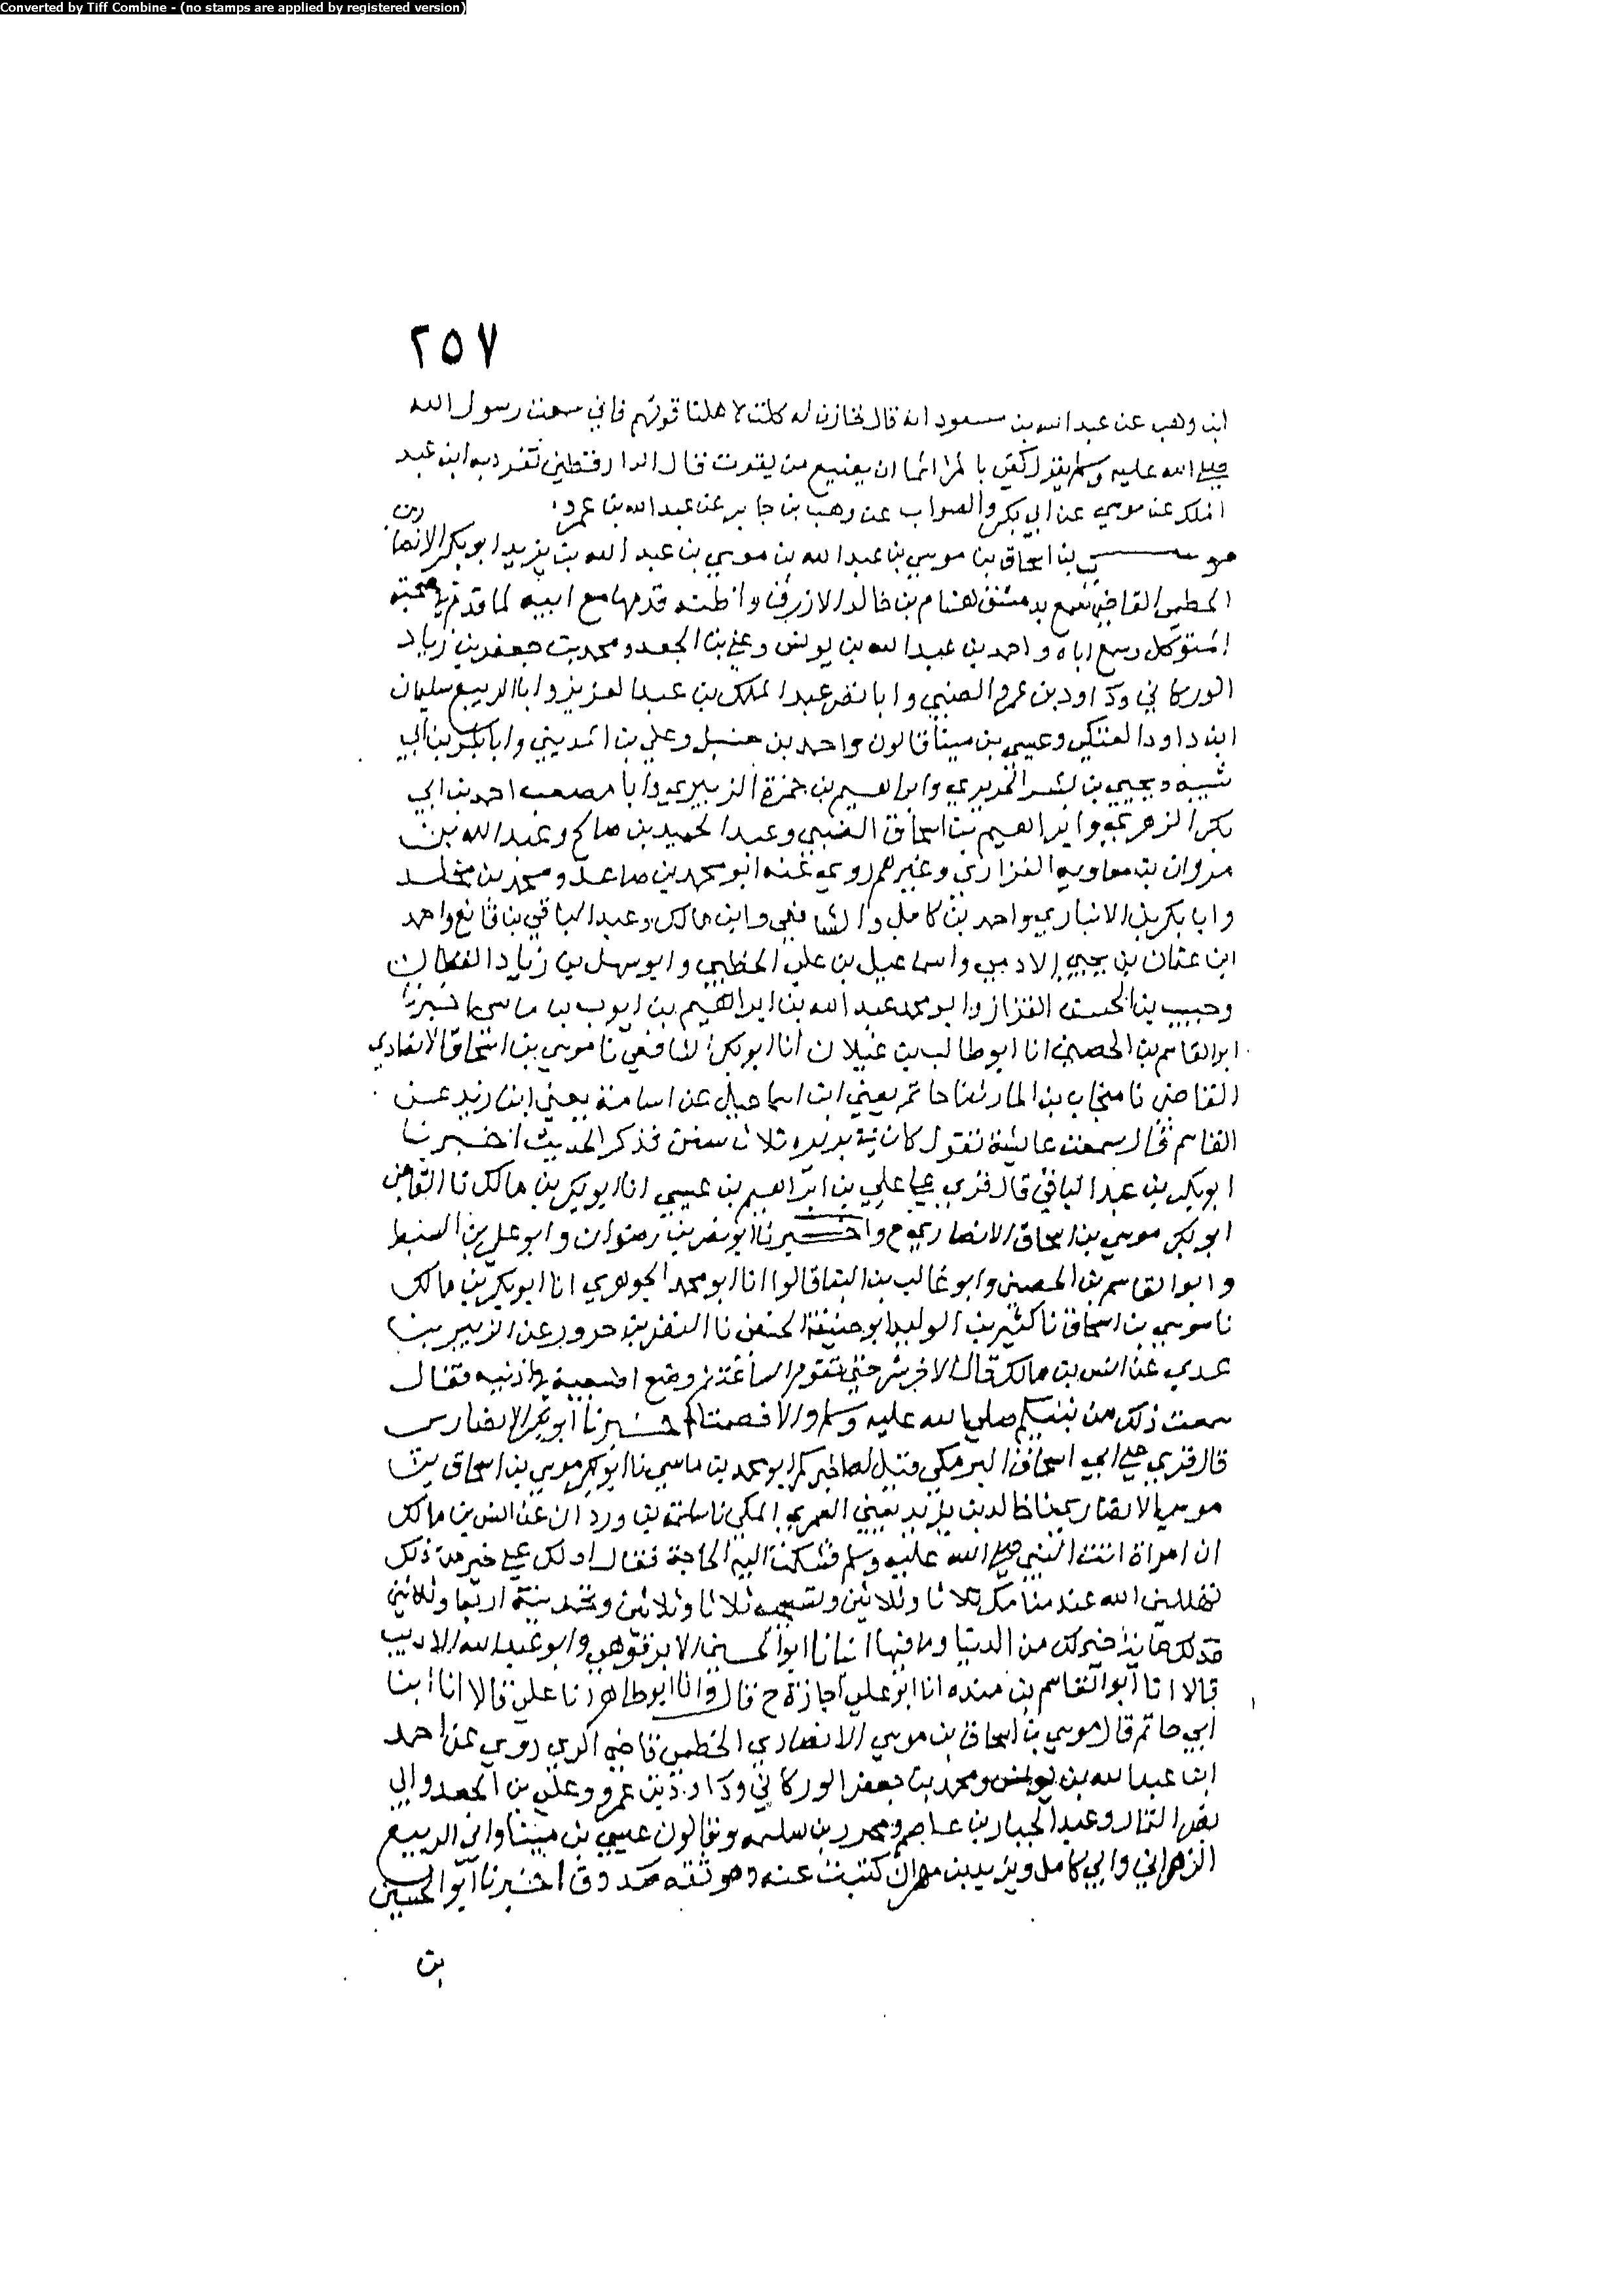 Converted by Tiff Combine - (no stamps are applied by registered version)
٢٥٧
ابن وهب عن عبد الله بن مسعود انه قال لخازن له كلت لاهلنا قوتهم فاني سمعت رسول الله
صلى الله عليه وسلم يقول كفى بالمرا اثما ان يضيع من يقوت قال الدارقطني تفرد به ابن عبد
الملك عن موسى عن ابي بكر والصواب عن وهب بن جابر عن عبد الله بن عمرو
موسى بن اسحاق بن موسي بن عبد الله بن موسي بن عبد الله بن يزيد ابو بكر الانصاري
الخطمي القاضي سمع بدمشق هشام بن خالد الازرق واظنه قدمها مع ابيه لما قدم في صحبة
المتوكل وسمع اباه واحمد بن عبد الله بن يونس وعلي بن الجعد ومحمد بن جعفر بن زياد
الوركاني وداود بن عمرو الضبي وابا نصر عبد الملك بن عبد العزيز وابا الربيع سليمان
ابن داود العتكي وعيسى بن مينا قالون واحمد بن حنبل وعلي بن المديني وابا بكر بن ابي
شيبة ويحيي بن بشر الحريري وابراهيم بن حمزة الزبيري وابا مصعب احمد بن ابي
بكر الزهري وابراهيم بن اسحاق الضبي وعبد الحميد بن صالح وعبد الله بن
مروان بن معاوية الفزاري وغيرهم روي عنه ابو محمد بن صاعد ومحمد بن مخلد
وابا بكر بن الانباري واحمد بن كامل والشافعي وابن مالك وعبد الباقي بن قانع واحمد
ابن عثمان بن يحيي الادمي واسماعيل بن علي الخطبي وابو سهل بن زياد القطان
وحبيب بن الحسن القزاز وابو محمد عبد الله بن ابراهيم بن ايوب بن ماسي اخبرنا
ابو القاسم بن الحصين انا ابو طالب بن غيلان انا ابو بكر الشافعي نا موسي بن اسحاق الانصاري
القاضي نا منجاب بن الحارث نا حاتم يعني ابن اسماعيل عن اسامة يعني ابن زيد عن
القاسم قال سمعت عائشة تقول كان في بريرة ثلاث سنن فذكر الحديث اخبرنا
ابو بكر بن عبد الباقي قال قري علي علي بن ابراهيم بن عيسي انا ابو بكر بن مالك نا القاضي
ابو بكر موسي بن اسحاق الانصاري ح واخبرنا ابو نصر بن رضوان وابو علي بن السبط
وابو القاسم بن الحصين وابو غالب بن البنا قالوا انا ابو محمد الجوهري انا ابو بكر بن مالك
نا موسي بن اسحاق نا كثير بن الوليد ابو حنيفة الحنفي نا النضر بن حرور عن الزبير بن
عدي عن انس بن مالك قال الاخر شر حتى تقوم الساعة ثم وضع اصبعيه في اذنيه فقال
سمعت ذلك من نبيكم صلى الله عليه وسلم والا فصمتا اخبرنا ابو بكر الانصاري
قال قري على ابي اسحاق البرمكي وقيل له اخبركم ابو محمد بن ماسي نا ابو بكر موسي بن اسحاق بن
موسي الانصاري نا خالد بن يزيد يعني العمري المكي نا سلمة بن وردان عن انس بن مالك
ان امراة اتت النبي صلى الله عليه وسلم فشكت اليه الحاجة فقال ادلك على خير من ذلك
تهللين الله عند منامك ثلاثا وثلاثين وتسبحيه ثلاثا وثلاثين وتحمدينه اربعا وثلاثين
فذلك ماية خير لك من الدنيا وما فيها انبانا ابو الحسين الابرقوهي وابو عبد الله الاديب
قالا انا ابو القاسم بن منده انا ابو علي اجازة ح قال وانا ابو طاهر انا علي قالا انا ابن
ابي حاتم قال موسي بن اسحاق بن موسي الانصاري الخطمي قاضي الري روي عن احمد
ابن عبد الله بن يونس ومحمد بن جعفر الوركاني وداود بن عمرو وعلي بن الجعد وابي
نصر التمار وعبد الجبار بن عاصم ومحرر بن سلمة وقالون عيسي بن مينا وابي الربيع
الزهراني وابي كامل ويزيد بن مهران كتبت عنه وهو ثقة صدوق اخبرنا ابو الحسين
بن